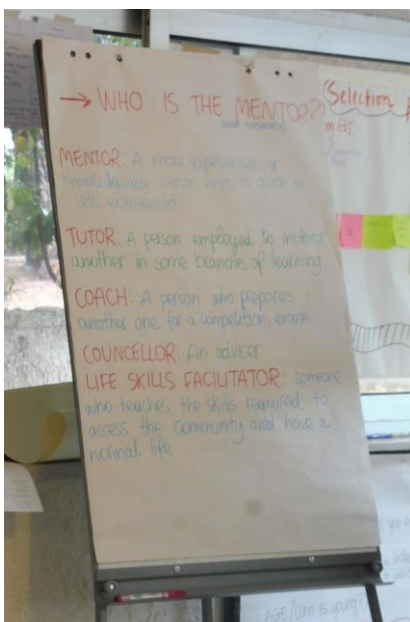 → WHO IS THE MENTOR?
MENTOR: A more experienced or
knowledgeable person helps to guide a
less experienced
TUTOR: A person employed to instruct
another in some branches of learning
COACH: A person who prepares
another one for a competition, exam
COUNCELLOR: An advicer
LIFE SKILLS FACILITATOR: someone
who teaches the skills required to
access the community and have a
normal life
Selection
AGE/who is young?